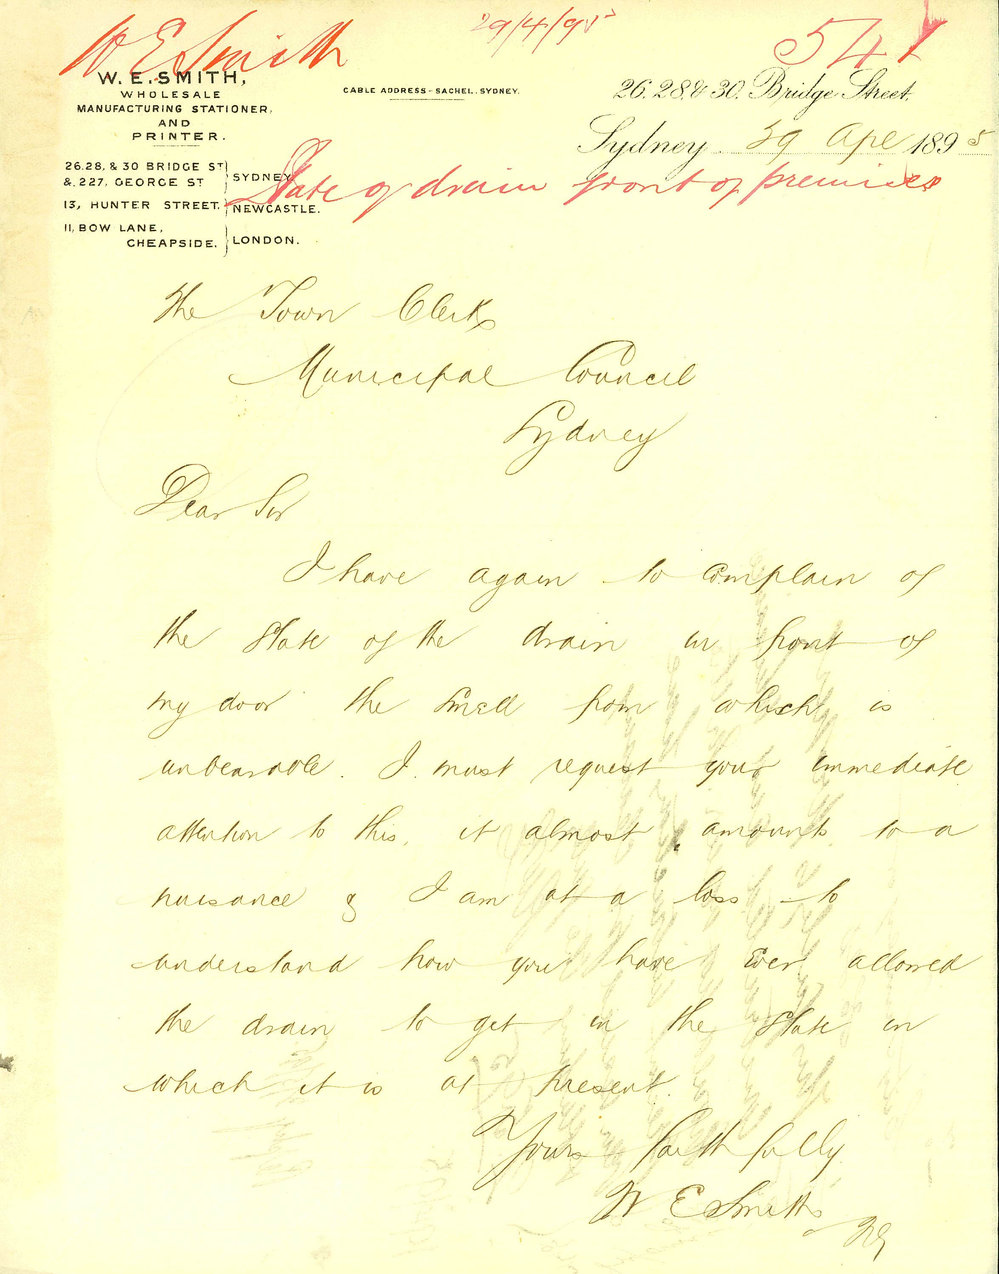 W E Smith
29/4/95
541
W. E. SMITH,
WHOLESALE
MANUFACTURING STATIONER,
AND
PRINTER.
CABLE ADDRESS - SACHEL, SYDNEY.
26. 28, & 30. Bridge Street,
Sydney. 29 Apl 1895
State of drain front of premises
26.28, & 30 BRIDGE ST
& 227, GEORGE ST
SYDNEY
13, HUNTER STREET. NEWCASTLE.
11, BOW LANE,
CHEAPSIDE. LONDON.
The Town Clerk
Municipal Council
Sydney
Dear Sir
I have again to complain of
the state of the drain in front of
my door the smell from which is
unbearable. I must request your immediate
attention to this, it almost amounts to a
nuisance & I am at a loss to
understand how you have ever allowed
the drain to get in the state in
which it is at present.
Yours faithfully
W E Smith